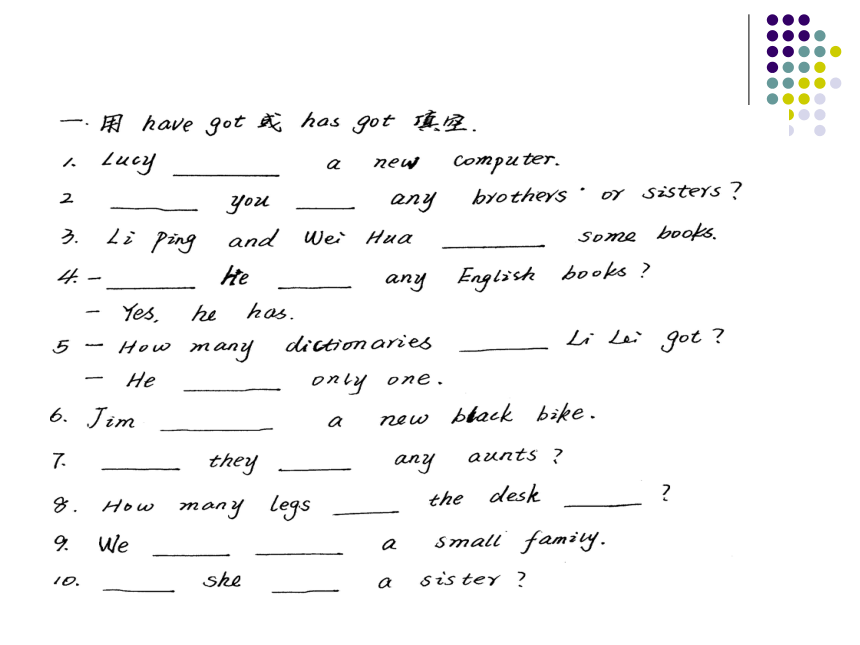 一. 用 have got 或 has got 填空.
1. Lucy ________ a new computer.
2 ________ you ____ any brothers or sisters?
3. Li Ping and Wei Hua ________ some books.
4. - ________ He ______ any English books?
- Yes, he has.
5 - How many dictionaries ________ Li Lei got?
- He ________ only one.
6. Jim ________ a new black bike.
7. ______ they ______ any aunts?
8. How many legs _____ the desk ______ ?
9. We ______ ______ a small family.
10. ______ she _____ a sister?